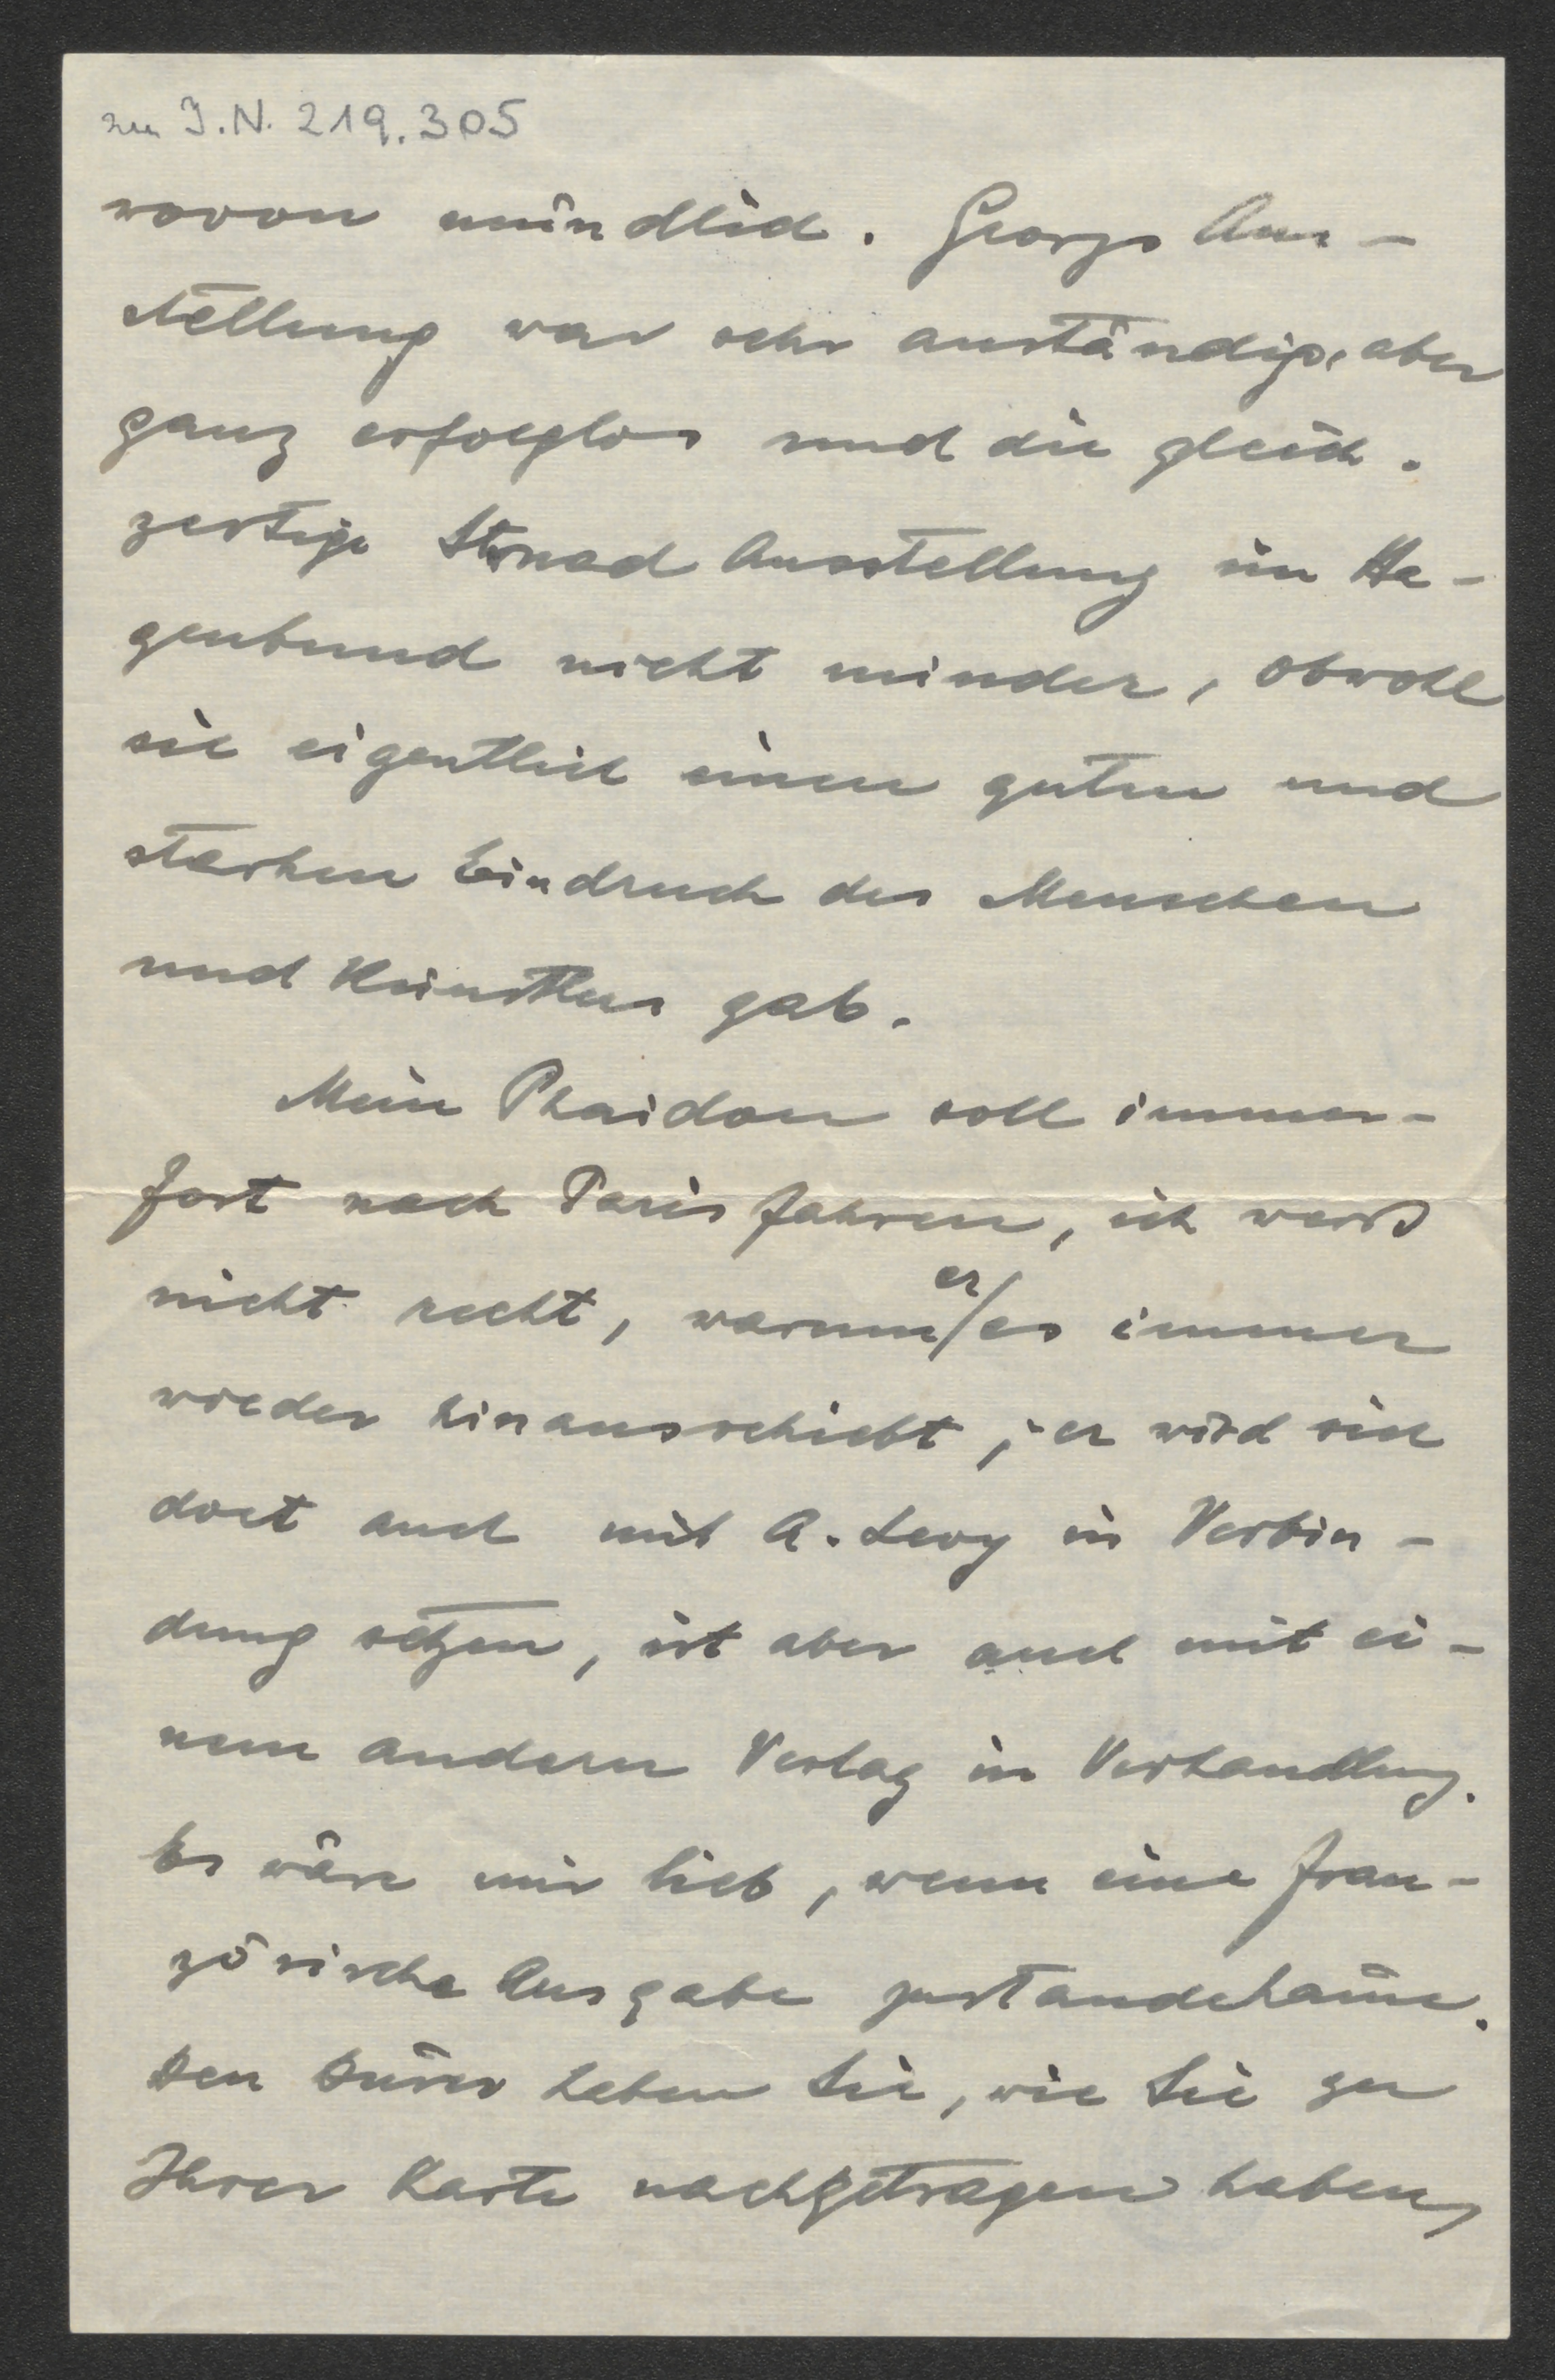 zu I.N. 219.305
wovon mündlich. Georgs Aus-
stellung war sehr anständig, aber
ganz erfolglos und die gleich-
zeitige Strnad Ausstellung im Ha-
genbund nicht minder, obwohl
sie eigentlich einen guten und
starken Eindruck des Menschen
und Künstlers gab.
Mein Phaidon soll immer-
fort nach Paris fahren, ich weiß
nicht recht, warum er es immer
wieder hinausschiebt; er wird sich
dort auch mit A. Levy in Verbin-
dung setzen, ist aber auch mit ei-
nem andern Verlag in Verhandlung.
Es wäre mir lieb, wenn eine fran-
zösische Ausgabe zustandekäme.
Den Dürer haben Sie, wie Sie zu
Ihrer Karte nachgetragen haben,